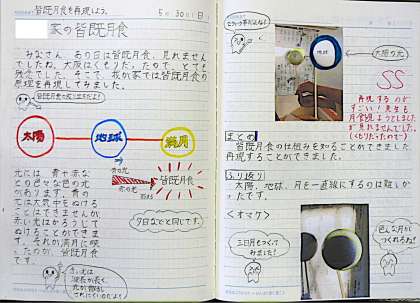 皆既月食を再現しよう。
5月30日(日)
家の皆既月食
みなさん、あの日は皆既月食、見れません
でしたね。大阪はくもりだったので、とても
残念でした。そこで、我が家では皆既月食の
原理を再現してみました。
太陽
地球
満月
青の光
赤の光
皆既月食
光には、青や赤な
どの色々な色の光
があります。青の
光は大気中をぬける
ことはできませんが、
赤い光はかろうじて
ぬけることができま
す。それが満月に映っ
たのが、皆既月食
です。
夕日などと同じです。
赤い光は
波長が長く、
地球
太陽の光
SS
再現するのが
すごい!先生も
月食撮ろうとしました
が見れませんでした
(くもりだったので)
まとめ
皆既月食の仕組みを知ることができました。
再現することができました。
ふり返り
太陽、地球、月を一直線にするのは難しか
ったです。
<オマケ>
三日月もつくって
みました!
色んな月が
つくれるね!